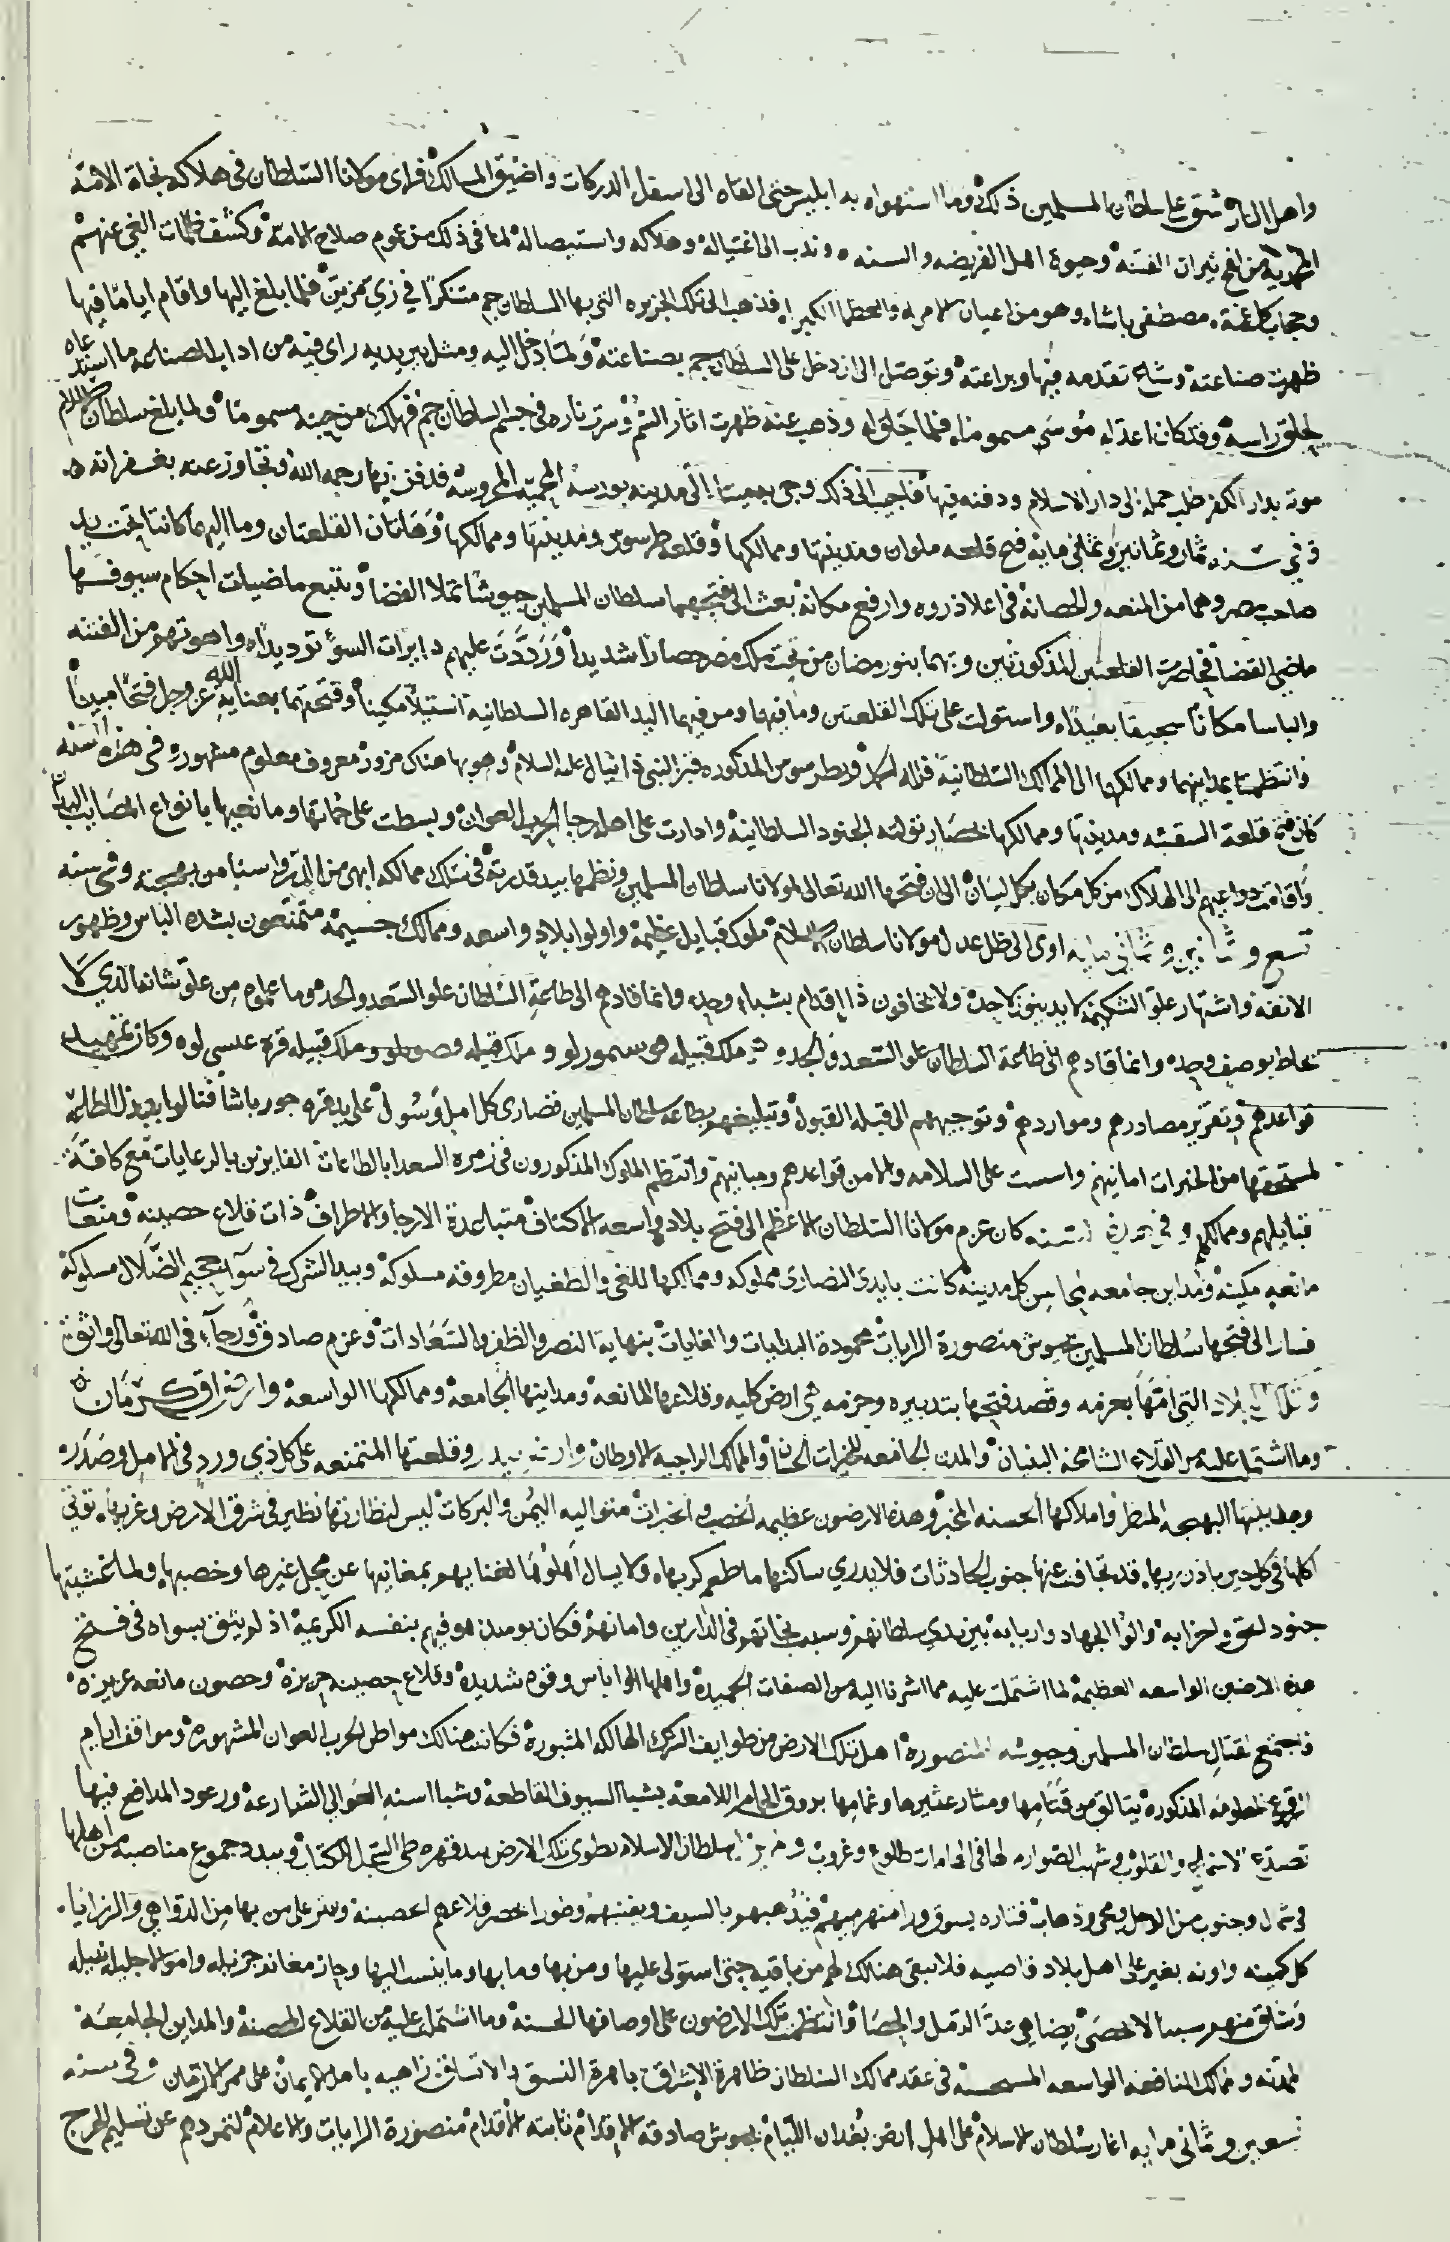 واهل النار شق على سلطان المسلمين ذلك وما استهواه به ابليس حتى القاه الى اسفل الدركات واضيق المسالك فراى مولانا السلطان فى هلاكه نجاة الامة
المحمدية من نيران الفتنه وحيوة اهل الفريضه والسنه وندب الى اغتياله وهلاكه واستيصاله لما فى ذلك من عموم صلاح الامة وكشف ظلمات الغى عنهم
مصطفى باشا وهو من اعيان الامرا والعظما الكبرا فذهب الى تلك الجزيره التى بها السلطان جم متنكرا في زي مزين فلما بلغ اليها واقام اياما فيها
ظهرت صناعته وشاع تقدمه فيها وبراعته وتوصل الى ان دخل على السلطان جم بصناعته ولما دخل اليه ومثل بين يديه راى فيه من اداب الصناعه ما استدعاه
لحلق راسه وقد كان اعد له موسى مسموما فلما حلق له وذهب عنه ظهرت اثار السم وسرت ناره فى جسم السلطان جم فهلك من حينه مسموما ولما بلغ سلطان الاسلام
موته بدار الكفر طلب حمله الى دار الاسلام ودفنه فيها فاجيب الى ذلك وجى به ميتا الى مدينه بورسه المحميه المحروسه فدفن بها رحمه الله وتجاوز عنه بغفرانه
وفي سنه ثمان وثمانين وثماني مايه فتح قلعه ملوان ومدينتها وممالكها وقلعه طرسوس ومدينتها وممالكها وهاتان القلعتان وما اليهما كانتا تحت يد
صاحب مصر وهما من المنعه والحصانة فى اعلا ذروه وارفع مكانه بعث الى فتحهما سلطان المسلمين جيوشا تملا الفضا وتتبع ماضيات احكام سيوفها
ماضى القضا فحاصرت القلعتين المذكورتين وبهما بنو رمضان من تحت ملك مصر حصارا شديدا ورددت عليهم دايرات السو ترديدا واهوتهم من الفتنه
والباسا مكانا سحيقا بعيدا واستولت على تلك القلعتين وما فيها ومن فيهما اليد القاهره السلطانية استيلا مكينا وفتحتهما بعناية الله عز وجل فتحا مبينا
وانتظمتا بمدينهما وممالكهما الى الممالك السلطانية فلله الحمد وبطرسوس المذكوره قبر النبي دانيال عليه السلام وهو بها هناك مزور معروف معلوم مشهور وفى هذه السنه
كان فتح قلعة ومدينتها وممالكها بحصار تولته الجنود السلطانية وادارت على اهله رحا الحرب العوان وبسطت على حماتها ومانعيها بانواع المصايب
دواعيهم الى الهلاك من كل مكان بكل لسان الى ان فتحها الله تعالى لمولانا سلطان المسلمين ونظمها بيد قدرته فى سلك ممالكه ابهى من الدر واسنا من بهجته وفى سنه
تسع وثمانين وثماني مايه اوى الى ظل عدل مولانا سلطان الاسلام ملوك قبايل عظيمه واولوا بلاد واسعه وممالك جسيمة متمنعون بشده الباس وظهور
الانفه واشتهار علو الشكيمة لا يدينون لاحد ولا يخافون ذا اقدام وانما قادهم الى طاعة السلطان علو السعد والجد وما علموه من علو شانه الذي لا
يحاط بوصف وحده وانما قادهم الى طاعة السلطان علو السعد والجد ملك قبيله وملك قبيله وملك قبيله قره عيسى لو وكان تمهيد
قواعدهم وتقرير مصادرهم ومواردهم وتوجيههم الى قبله القبول وتبليغهم بطاعه سلطان المسلمين قصارى كل امل وسول على يد قره جور باشا فنالوا بهذه الطاعه
لمستحقها من الخيرات امانيهم واسست على السلامه والامن قواعدهم ومبانيهم وانتظم الملوك المذكورون فى زمره السعدا بالطاعات الفايزين بالرعايات مع كافة
قبايلهم وممالكهم وفى هذه السنه كان عزم مولانا السلطان الاعظم الى فتح بلاد واسعه الاكناف متباعدة الارجا والاطراف ذات قلاع حصينه ومنعات
مانعه مكينه ومداين جامعه كل مدينة كانت بايدى النصارى مملوكه ومسالكها للغى والطغيان مطروقه مسلوكه وبيد الشرك فى سوآ جحيم الضلال مسلوكة
فسار الى فتحها سلطان المسلمين بجيوش منصورة الرايات محمودة البدايات والغايات بنهاية النصر والظفر والسعادات وعزم صادق ورجاء فى الله تعالى واثق
وتلك البلاد التي امها بعزمه وقصد فتحها بتدبيره وحزمه هى ارض كليه وقلاعها المانعه ومداينها الجامعه وممالكها الواسعه وارض اق كرمان
وما اشتمل عليه من القلاع الشامخة البنيان والمدن الجامعه للخيرات الحسان والممالك الراحبه الاوطان وقلعتها المتمنعه على كل ذي ورد فى الامل وصدر
ومداينها البهجه المنظر واملاكها الحسنه المخبر وهذه الارضون عظيمه الخصب والخيرات متواليه اليمن والبركات ليس لنظارتها نظير فى شرق الارض وغربها توتى
اكلها فى كل حين باذن ربها قد تجافت عنها جنوب الحادثات فلا يدري ساكنها ما طعم كربها ولا يسال اهلوها لغنايهم بمغانيها عن محل غيرها وخصبها ولما غشيتها
جنود الحق واحزابه واتوا الجهاد واربابه بين يدي سلطانهم وسبب نجاتهم فى الدارين وامانهم فكان يومئذ هو فيهم بنفسه الكريمة اذ لم يثق بسواه فى فتح
هذه الارضين الواسعه العظيمة لما اشتملت عليه مما اشرنا اليه من الصفات الحميدة واهلها الو اباس وقوه شديدة وقلاع حصينه حريزة وحصون مانعه عزيزة
فاجتمع لقتال سلطان المسلمين وجيوشه المنصورة اهل تلك الارض من طوايف الشرك الهالكه المثبورة فكانت هنالك مواطن الحرب العوان المشهوره ومواقف ايام
المذكوره يتالق من قتامها ومثار عثيرها وغمامها بروق الحمام اللامعة بشبا السيوف القاطعة وشبا اسنه العوالي الشارعة ورعود المدافع فيها
تصدع والقلوب وشهب الصوارم لها فى الهامات طلوع وغروب سلطان الاسلام يطوى تلك الارض بيد قهره طى السجل للكتاب ويبدد جموع مناصبه من اهلها
فى شمال وجنوب من الاهل ومجى وذهاب فتاره يسوق وراء منهزميهم فيذهبهم بالسيف ويفنيهم وطورا يحصر قلاعهم الحصينة وينثر على من بها من الدواهى والرزايا
كل كمينه واونه يغير على اهل بلاد قاصيه فلا تبقى هنالك لهم من باقيه حتى استولى عليها ومن بها وما بها وما ينسب اليها وحاز مغانم جزيله واموالا جليله نبيله
وساق منهم سبيا لا يحصى يضاهى عدة الرمل والحصا وانتظمت تلك الارضون على اوصافها الحسنة وما اشتملت عليه من القلاع المحصنة والمداين الجامعة
الممالك النافعه الواسعه المستحسنه فى عقد ممالك السلطان ظاهرة الاشراق باهرة النسق والاتساق زاهيه باهل الايمان على ممر الازمان وفى سنه
تسعين وثماني مايه اغار سلطان الاسلام على اهل ارض بغدان الليام بجيوش صادقه الاقدام ثابته الاقدام منصورة الرايات والاعلام لتمردهم عن تسليم الخرج